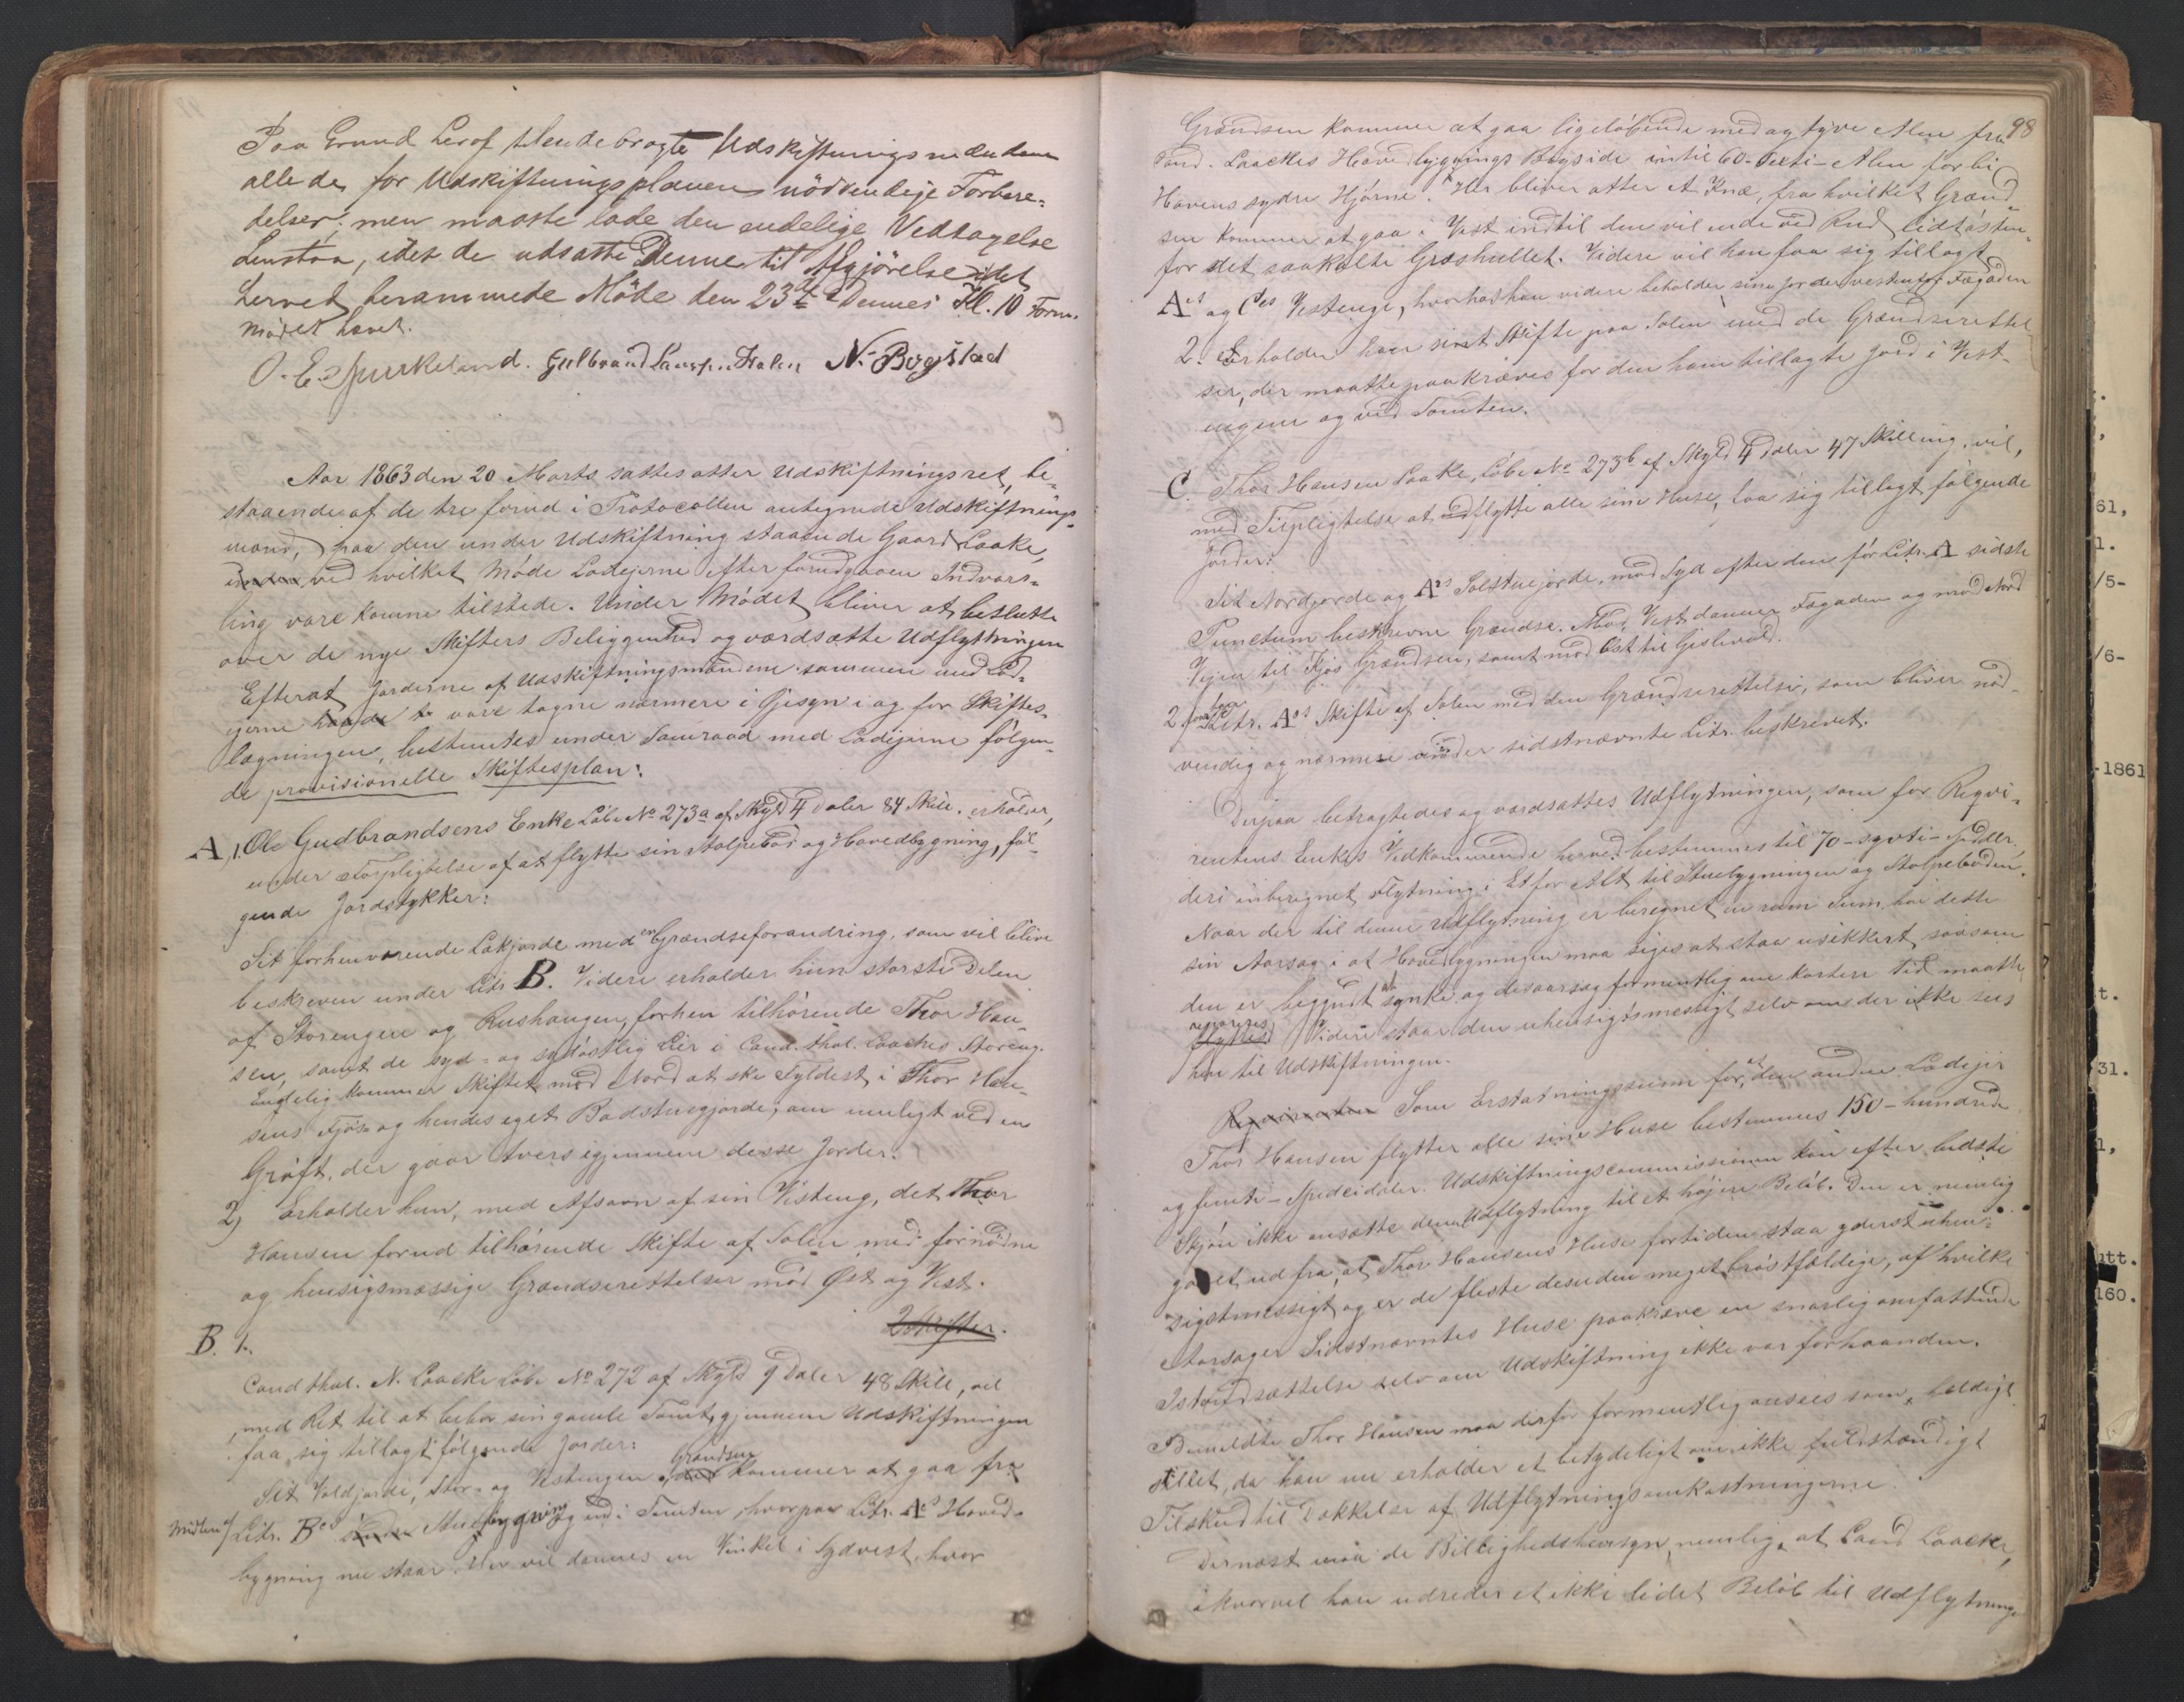 Paa Grund heraf tilendebragte Udskiftningsmændene
alle de for Udskiftningsplanen nödvendige Forbere-
delser; men maatte lade den endelige Vedtagelse
henstaa, idet de udsatte Denne til Afgjörelse i det
herved berammede Möde den 23de Dennes Kl. 10 Form.
Mödet hævet.
O. E. Spurkeland. Gulbrand Larsen N. Bogstad
Aar 1863 den 20 Marts sattes atter Udskiftningsret, be-
staaende af de tre forud i Protocollen antegnede Udskiftnings-
mænd, paa den under Udskiftning staaende Gaard Laake,
ved hvilket Möde Lodejerne efter forudgaaen Indvars-
ling vare komne tilstede. Under Mödet bliver at beslutte
over de nye Skifters Beliggenhed og værdsætte Udflytningen
Efterat Jorderne af Udskiftningsmændene sammen med Lod-
ejerne havde vare tagne nærmere i Öjesyn i og for Skiftes-
lægningen, bestemtes under Samraad med Lodejerne fölgen-
de provisionelle Skiftesplan:
A, 1. Ole Gudbrandsens Enke Löbe No 273a af Skyld 4 Daler 84 Skill. erholder,
under Forpligtelse af at flytte sin Stolpebod og Hovedbygning, föl-
gende Jordstykker:
Sit forhenværende Lökjorde med en Grændseforandring, som vil blive
beskreven under Litr. B. Videre erholder hun störste Delen
af Storengen og Rushaugen, forhen tilhörende Thor Han-
sen, samt de syd- og sydöstlig Leir i Cand. thol. Laackes Storeng.
Endelig kommer Skiftet mod Nord at ske Fyldest i Thor Han-
sens Fjös- og hendes eget Badstuegjorde, om muligt ved en
Gröft, der gaar tvers igjennem desse Jorder.
2) Erholder hun, med Afsavn af sin Vesteng, det Thor
Hansen forud tilhörende Skifte af Solen med fornödne
og hensigsmæssige Grændserettelser mod Øst og Vest.
2 Skifter.
B. 1.
Cand thol. N. Laacke Löbe No 272 af Skyld 9 Daler 48 Skill, vil
med Ret til at beboe sin gamle Tomt, gjennem Udskiftningen
faa sig tillagt fölgende Jorder:
Grændsen
Sit Voldjorde, Stor- og Vestengen, kommer at gaa fra
Midten af Litr. Bes Stuebygning ud i Tomten, hvorpaa Litr. Aes Hoved-
bygning nu staar. Her vil dannes en Vinkel i Sydvest, hvor
98
Grændsen kommer at gaa ligelöbende med og tyve Alen fra
Cand. Laackes Hovedbygnings Bagside indtil 60-sexti-Alen forbi
Havens sydre Hjörne. Her bliver atter et Knæ, fra hvilket Grænd-
sen kommer at gaa i Vest indtil den vil ende ved Rud
for det saakaldte Græshullet. Videre vil han faa sig tillagt
Aes og Ces Vestenge, hvorhos han videre beholder sine Jorder vestenfor Fægaden
2. Erholder han sinet Skifte paa Solen med de Grændserettel
ser, der maatte paakræves for den ham tillagte Jord i Vest-
engene og ved Tomten.
C. Thor Hansen Laake, Löbe No 273b af Skyld 4 Daler 47 Skilling, vil,
med Tilpligtelse at udflytte alle sine Huse, faa sig tillagt fölgende
Jorder:
Sit Nordjorde og Aes Solstuejorde, mod Syd efter den för Litr. A sidste
Punctum beskrevne Grændse. Mod Vest danner Fægaden og mod Nord
Vejen til Fjös Grændsen, samt mod Öst til Gislevold.
2. Litr. Aes Skifte af Solen med den Grændserettelse, som bliver nöd-
vendig og nærmere under sidstnævnte Litr. beskrevet.
Derpaa betragtedes og værdsattes Udflytningen, som for Reqvi-
rentens Enkes Vedkommende herved bestemmes til 70-sytti-Spddlr,
deri inberegnet Flytning i Et for Alt til Stuebygningen og Stolpeboden.
Naar der til denne Udflytning er beregnet en rum Sum, har dette
sin Aarsag i at Hovedbygningen maa siges at staa usikkert, saasom
den er begyndt at synke og desaarsag formentlig om kortere Tid maatte
repareres
flyttes. Videre staar den uhensigtsmessigt selv om der ikke sees
hen til Udskiftningen.
Som Erstatningssum for, at den anden Lodejer
Thor Hansen flytter alle sine Huse bestemmes 150-hundrede
og femti-Speciedaler. Udskiftningscommissionen kan efter bedste
Skjön ikke ansætte denne Udflytning til et höjere Belöb. Den er nemlig
gaaet ud fra, at Thor Hansens Huse fortiden staa yderst uhen-
sigstmessigt og er de fleste desuden meget bröstfældige, af hvilke
Aarsager Sidstnævntes Huse paakræve en snarlig omfattende
Istandsættelse selv om Udskiftning ikke var forhaanden.
Bemeldte Thor Hansen maa derfor formentlig ansees som heldigt
stillet, da han nu erholder et betydeligt om ikke fuldstændigt
Tilskud til Dækkelse af Udflytningsomkostningerne.
Dernæst maa de Billighedshensyn, nemlig, at Cand Laacke,
ihvorvel han udreder et ikke lidet Belöb til Udflytnings
61,
1.
/5-
/6-
-1861
t.
31.
1,
utt.
160.